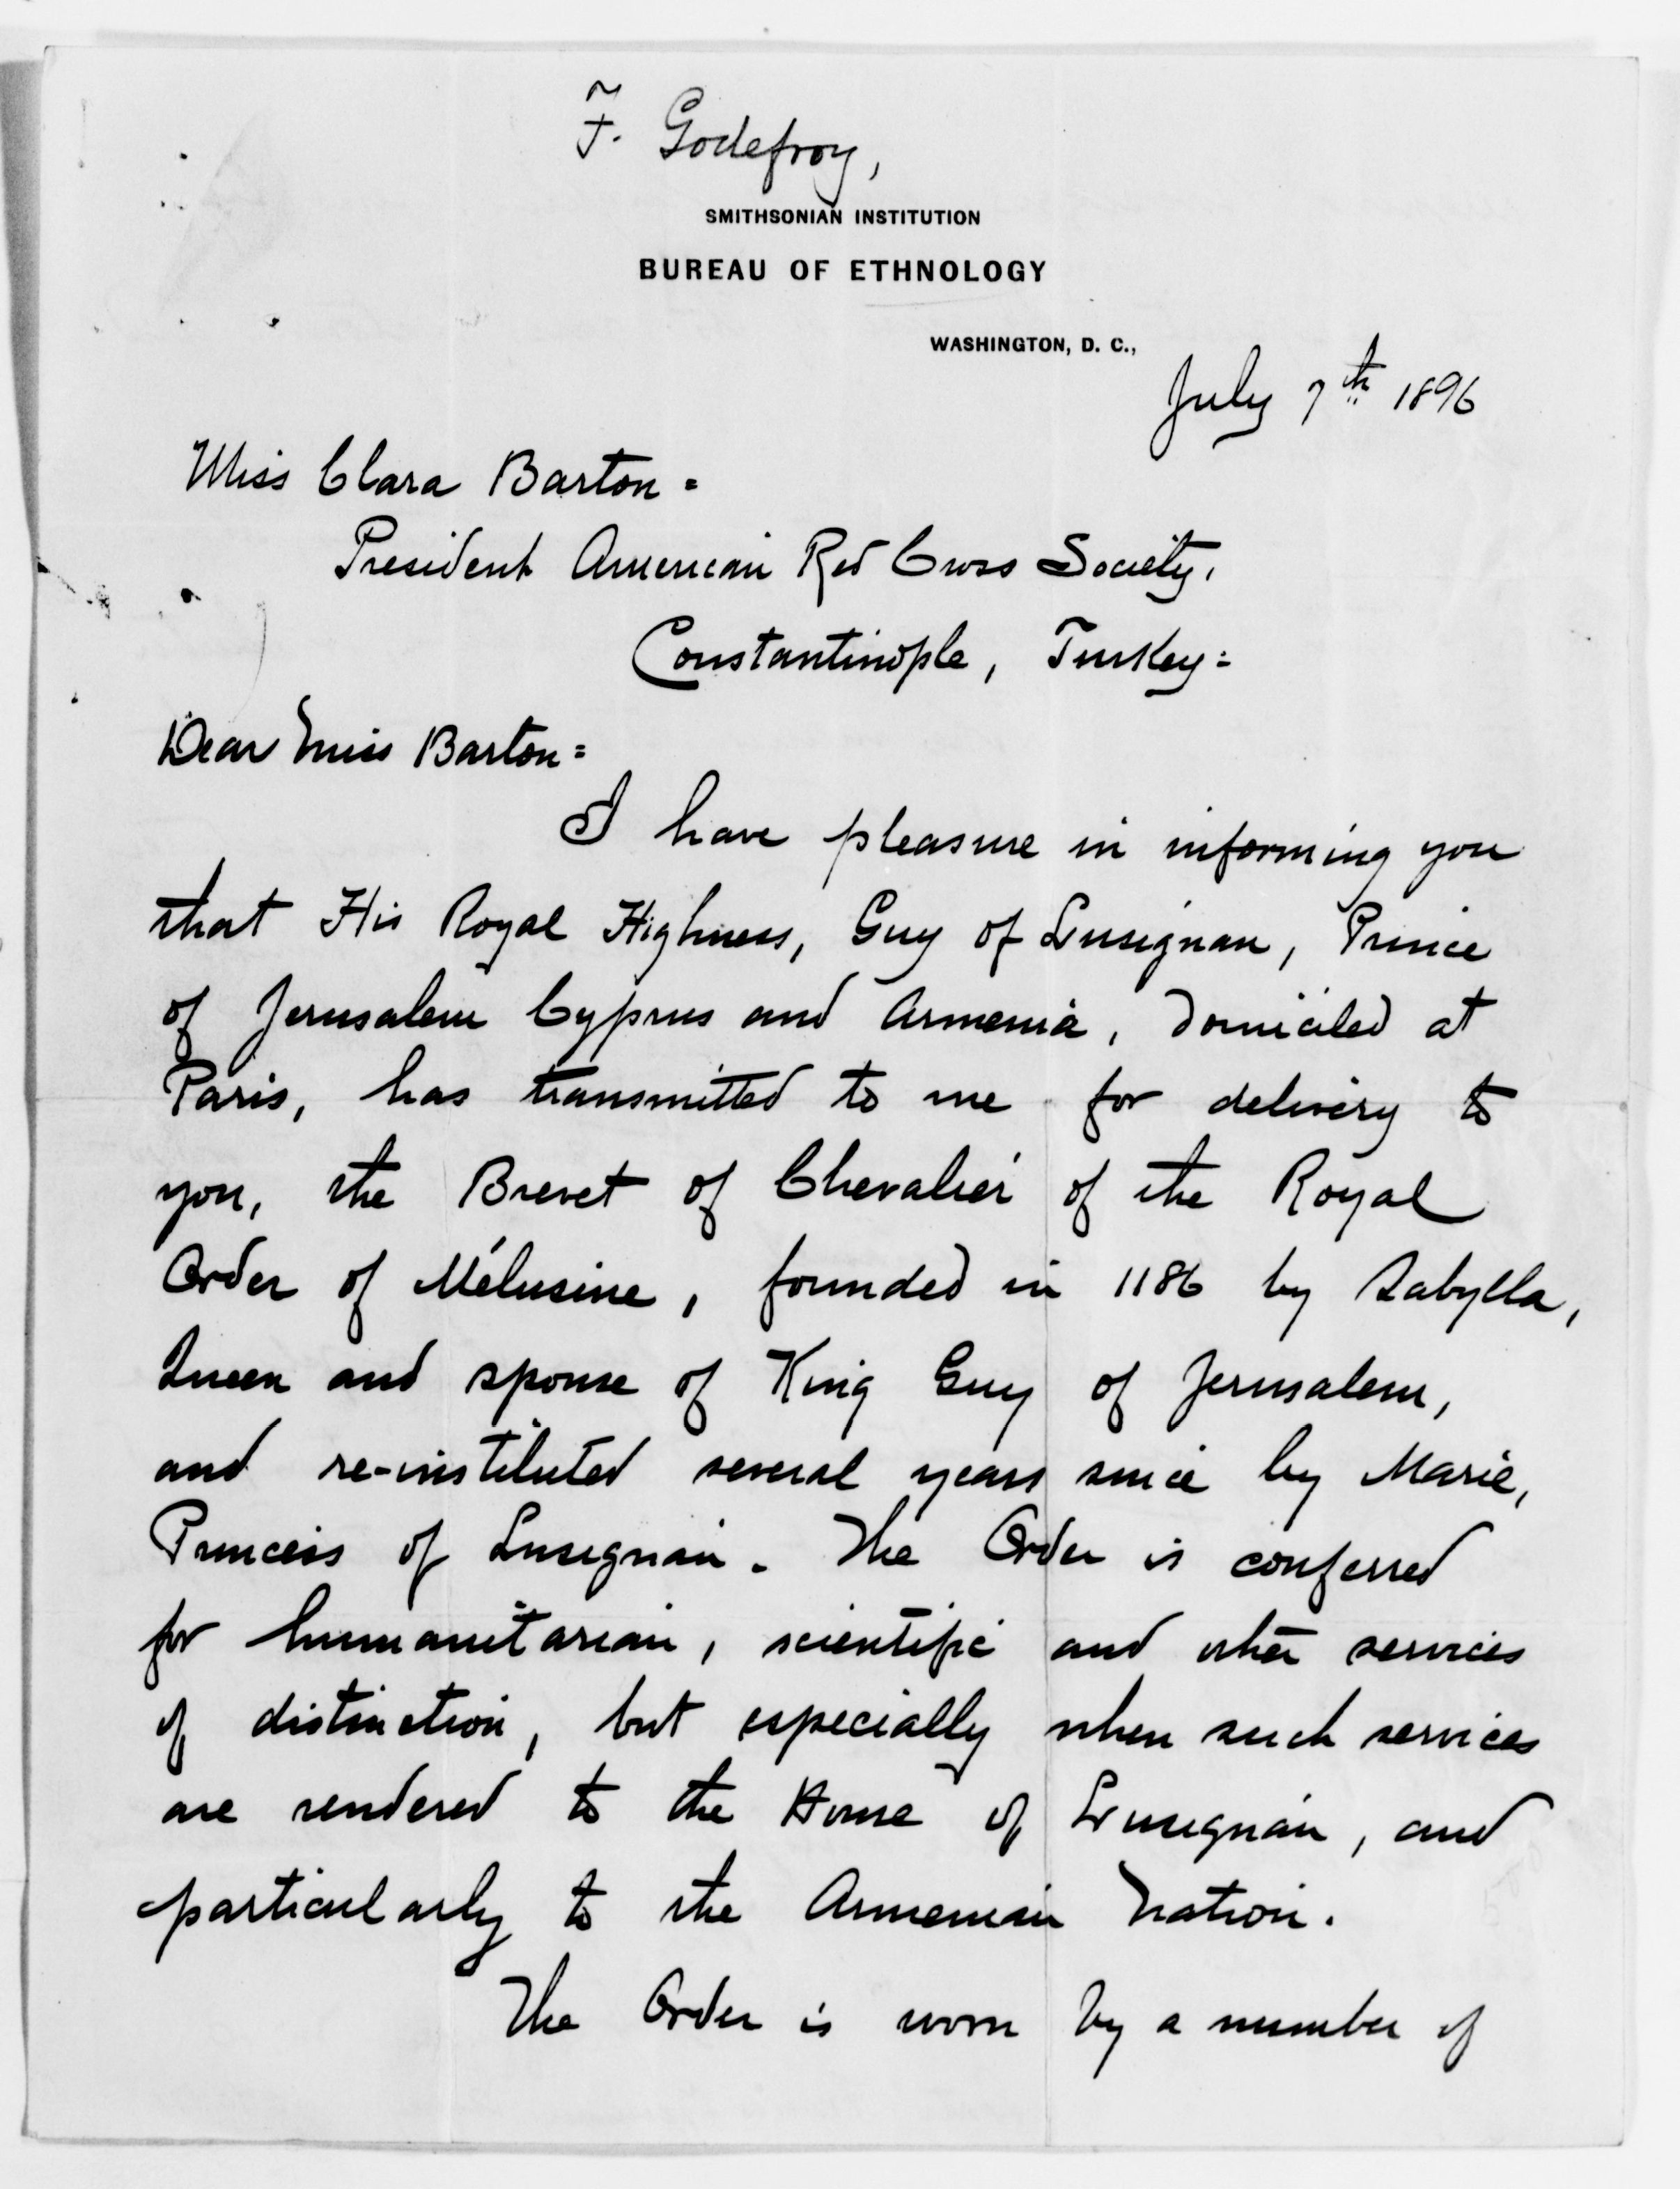 F. Godefroy,
SMITHSONIAN INSTITUTION
BUREAU OF ETHNOLOGY
WASHINGTON, D. C.,
July 7th 1896
Miss Clara Barton =
President American Red Cross Society,
Constantinople, Turkey =
Dear Miss Barton =
I have pleasure in informing you
that His Royal Highness, Guy of Lusignan, Prince
of Jerusalem Cyprus and Armenia, domiciled at
Paris, has transmitted to me for delivery to
you, the Brevet of Chevalier of the Royal
Order of Mélusine, founded in 1186 by Sabylla,
Queen and spouse of King Guy of Jerusalem,
and re-instituted several years since by Marie,
Princess of Lusignan. The Order is conferred
for humanitarian, scientific and other services
of distinction, but especially when such services
are rendered to the House of Lusignan, and
particularly to the Armenian Nation.
The Order is worn by a number of